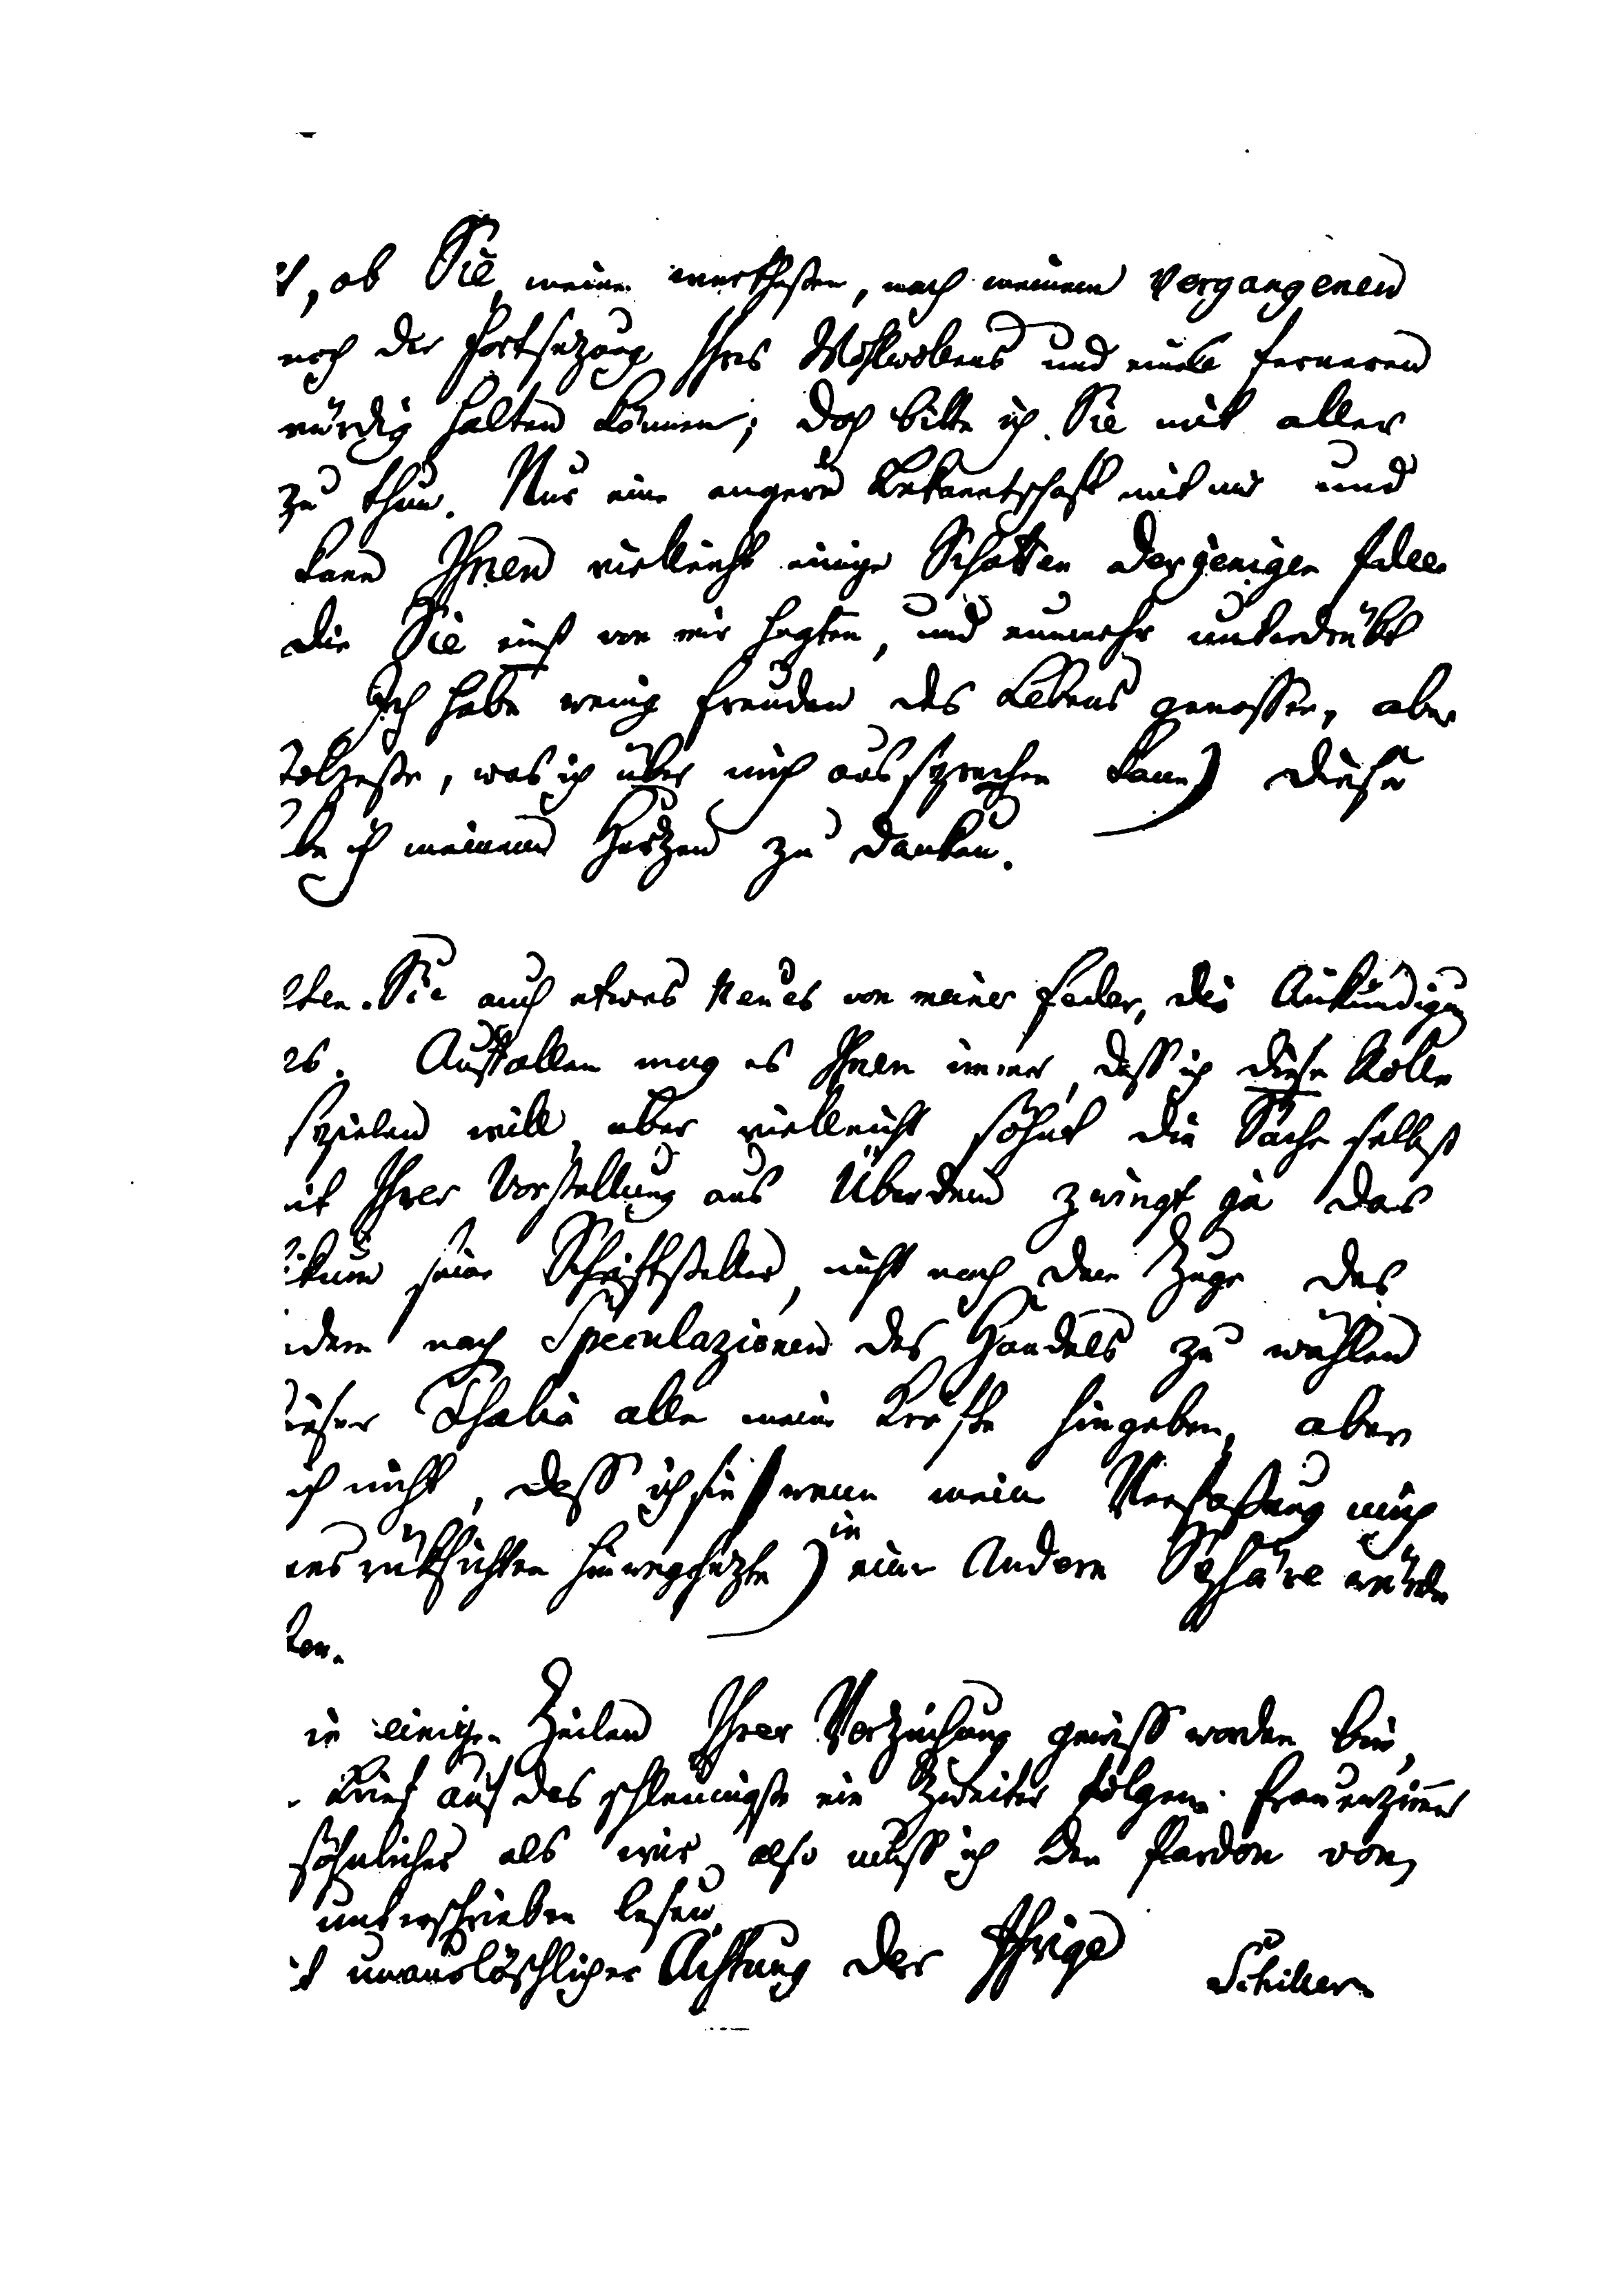 t, ob Sie, meine werthesten, nach meinem vergangenen
noch der Fortsezung Ihres Wohlwollens und eines ferneren
würdig halten können; doch bitte ich Sie mit aller
zu thun. Nur eine engere Bekanntschaft mit mir und
kann Ihnen vielleicht einige Schatten derjenigen Idee
die Sie einst von mir hegten, und nunmehr unterdrükt
Ich habe wenig Freuden des Lebens genossen, aber
tolzeste, was ich über mich aussprechen kann) diese
be ich meinem Herzen zu danken.
lten Sie auch etwas Neues von meiner Feder, die Ankündigung
es. Auffallen mag es Ihnen immer, dass ich diese Rolle
spielen will, aber vielleicht söhnt die Sache selbst
it Ihrer Vorstellung aus Überdem zwingt ja das
ikum seine Schriftsteller, nicht nach dem Zuge des
dern nach Speculazionen des Handels zu wählen
ieser Thalia alle meine Kräfte hingeben, aber
ich nicht, dass ich sie (wenn meine Verfassung mich
nsrüksichten hinwegsezte) in einer andern Sphäre würde
ben.
in einigen Zeilen Ihrer Verzeihung gewiss worden bin,
Brief auf das schleunigste ein Zweiter folgen. Frauenzimmer
söhnlicher als wir, also muss ich den Pardon von
unterschrieben lesen.
it unauslöschlicher Achtung der Ihrige Schiller